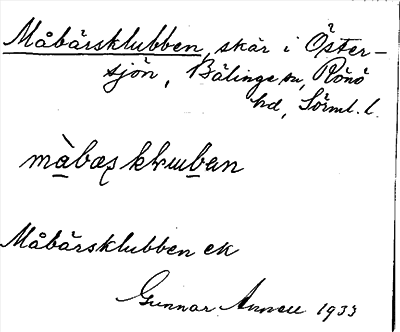 Måbärsklubben, skär i Öster-
sjön, Bälinge sn, Rönö
hd, Sörml. l.
Måbärsklubben ek
Gunnar 1933